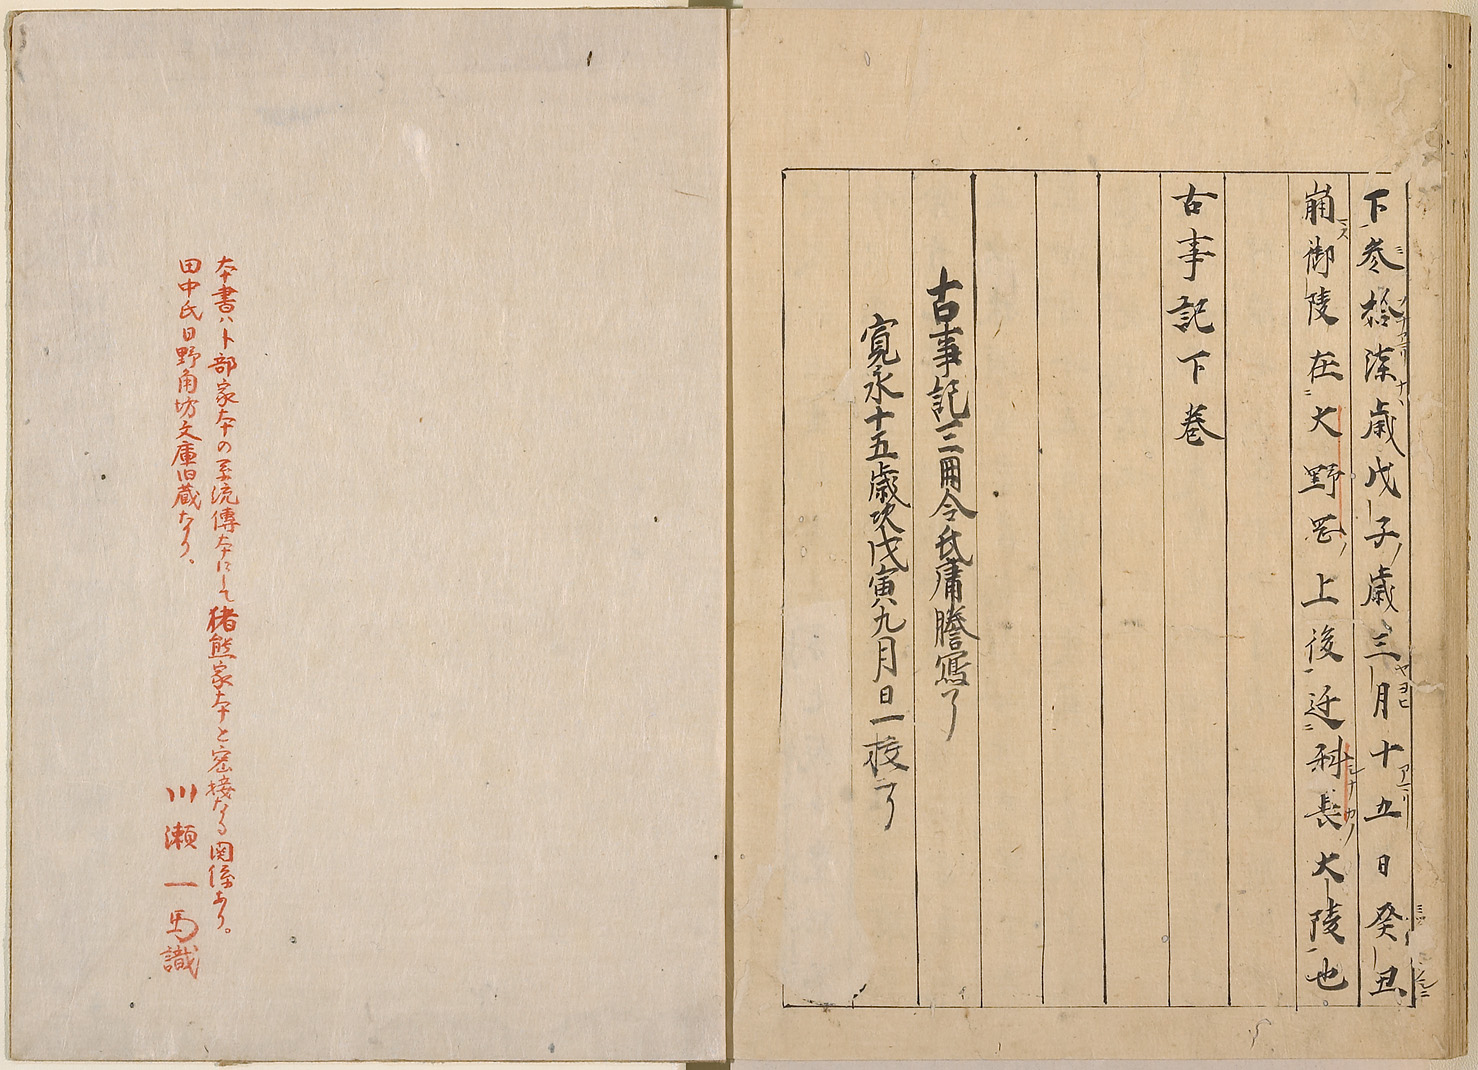 下参拾漆歳戊子歳三月十五日癸丑
崩御陵在大野岡上後迁科長大陵也
古事記下巻
古事記三冊令氏庸謄寫了
寛永十五歳次戊寅八九月日一校了
本書ハ卜部家本の系流傳本にして猪熊家本と密接なる関係あり。
田中氏日野角坊文庫旧蔵なり、
川瀬一馬識